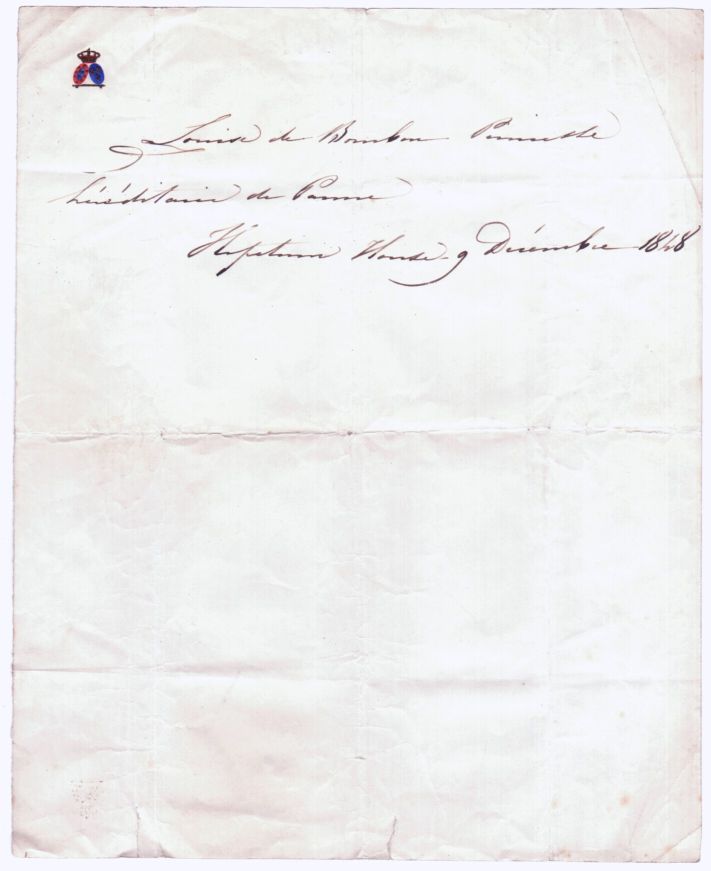 Louise de Bourbon Princesse
héréditaire de Parme
Hopetoun House 9 Décembre 1848